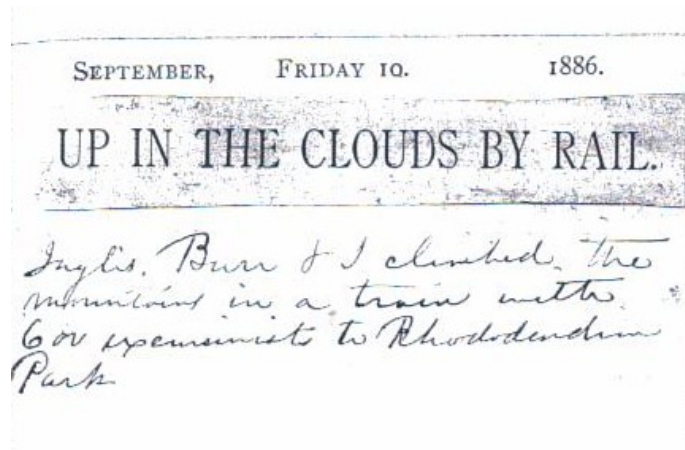 SEPTEMBER, FRIDAY 10. 1886.
UP IN THE CLOUDS BY RAIL.
Inglis, Burr & I climbed the
mountains in a train with
600 excursionists to Rhododendron
Park